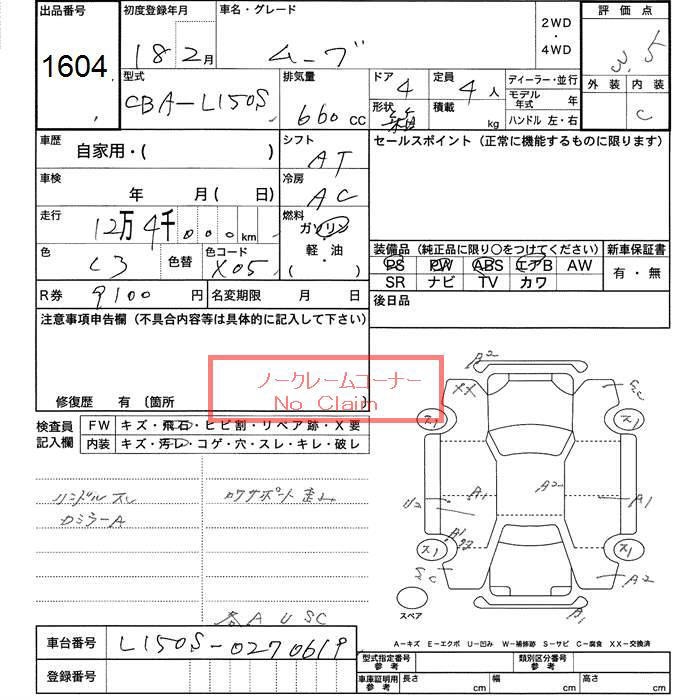 出品番号
1604
初度登録年月
18 2月
車名・グレード
ムーブ
2WD
・
4WD
評価点
3.5
外装 内装
C
型式
CBA-L150S
排気量
660 cc
ドア
4
定員
4 人
形状
積載
kg
ディーラー・並行
モデル年式 年
ハンドル 左・右
車歴
自家用・( )
シフト
AT
セールスポイント（正常に機能するものに限ります）
車検
年 月( 日)
冷房
AC
走行
12万4千000km
燃料
ガソリン
・
軽・油
( )
色
色替
色コード
X05
装備品（純正品に限り○をつけてください）
新車保証書
PS PW ABS エアB AW
SR ナビ TV カワ
有・無
R券 9100 円
名変期限 月 日
後日品
注意事項申告欄（不具合内容等は具体的に記入して下さい）
修復歴 有 〔箇所
ノークレームコーナー
No Claim
検査員記入欄
FW キズ・飛石・ヒビ割・リペア跡・X要
内装 キズ・汚レ・コゲ・穴・スレ・キレ・破レ
ハンドルスレ
ロワサポート歪ミ
A2
A1
A2
A1
A1
A2
A1
スペア
A U SC
車台番号 L150S-0270619
登録番号
A－キズ E－エクボ U－凹み W－補修跡 S－サビ C－腐食 XX－交換済
型式指定番号 参考
類別区分番号 参考
車庫証明用 参考
長さ cm 幅 cm 高さ cm